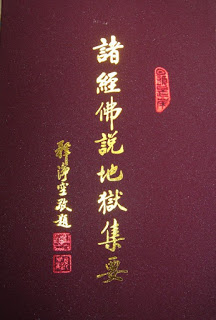 諸經佛說地獄集要
釋淨空敬題